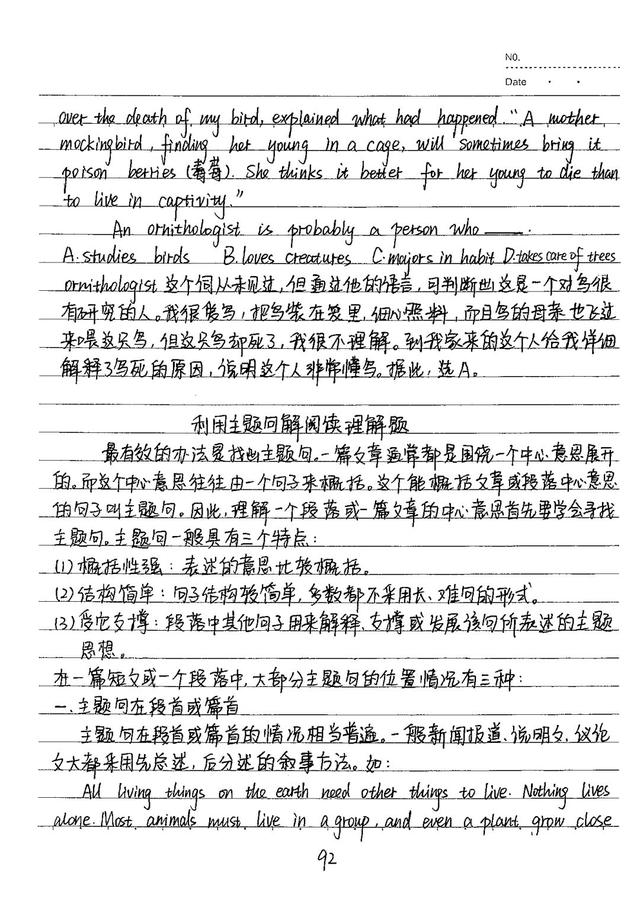 NO.
Date · ·
over the death of my bird, explained what had happened. "A mother
mockingbird, finding her young in a cage, will sometimes bring it
poison berries (莓莓). She thinks it better for her young to die than
to live in captivity."
An ornithologist is probably a person who ____.
A. studies birds B. loves creatures C. majors in habit D. takes care of trees
ornithologist 这个词从未见过,但通过他的语言,可判断出这是一个对鸟很
有研究的人。我很爱鸟,把鸟装在笼里,细心照料,而且鸟的母亲也飞过
来喂这只鸟,但这只鸟却死了,我很不理解。到我家来的这个人给我详细
解释了鸟死的原因,说明这个人非常懂鸟。据此,选A。
利用主题句解阅读理解题
最有效的办法是找出主题句。一篇文章通常都是围绕一个中心意思展开
的。而这个中心意思往往由一个句子来概括。这个能概括文章或段落中心意思
的句子叫主题句。因此,理解一个段落或一篇文章的中心意思首先要学会寻找
主题句。主题句一般具有三个特点:
(1) 概括性强:表述的意思比较概括。
(2) 结构简单:句子结构较简单,多数都不采用长、难句的形式。
(3) 受它支撑:段落中其他句子用来解释、支撑或发展该句所表述的主题
思想。
在一篇短文或一个段落中,大部分主题句的位置情况有三种:
一、主题句在段首或篇首
主题句在段首或篇首的情况相当普遍。一般新闻报道、说明文、议论
文大都采用先总述,后分述的叙事方法。如:
All living things on the earth need other things to live. Nothing lives
alone. Most animals must live in a group, and even a plant grow close
92